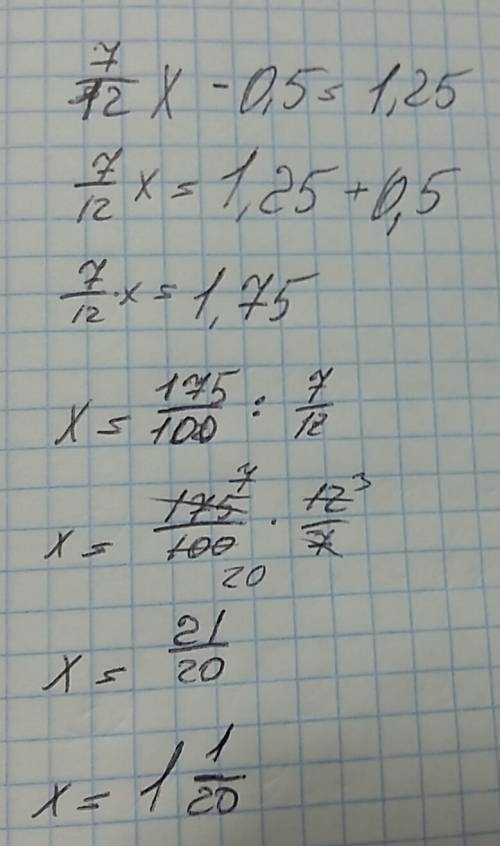 7/12 x - 0,5 = 1,25
7/12 x = 1,25 + 0,5
7/12 · x = 1,75
x = 175/100 : 7/12
x = 175 7/100 20 · 12 3/7
x = 21/20
x = 1 1/20